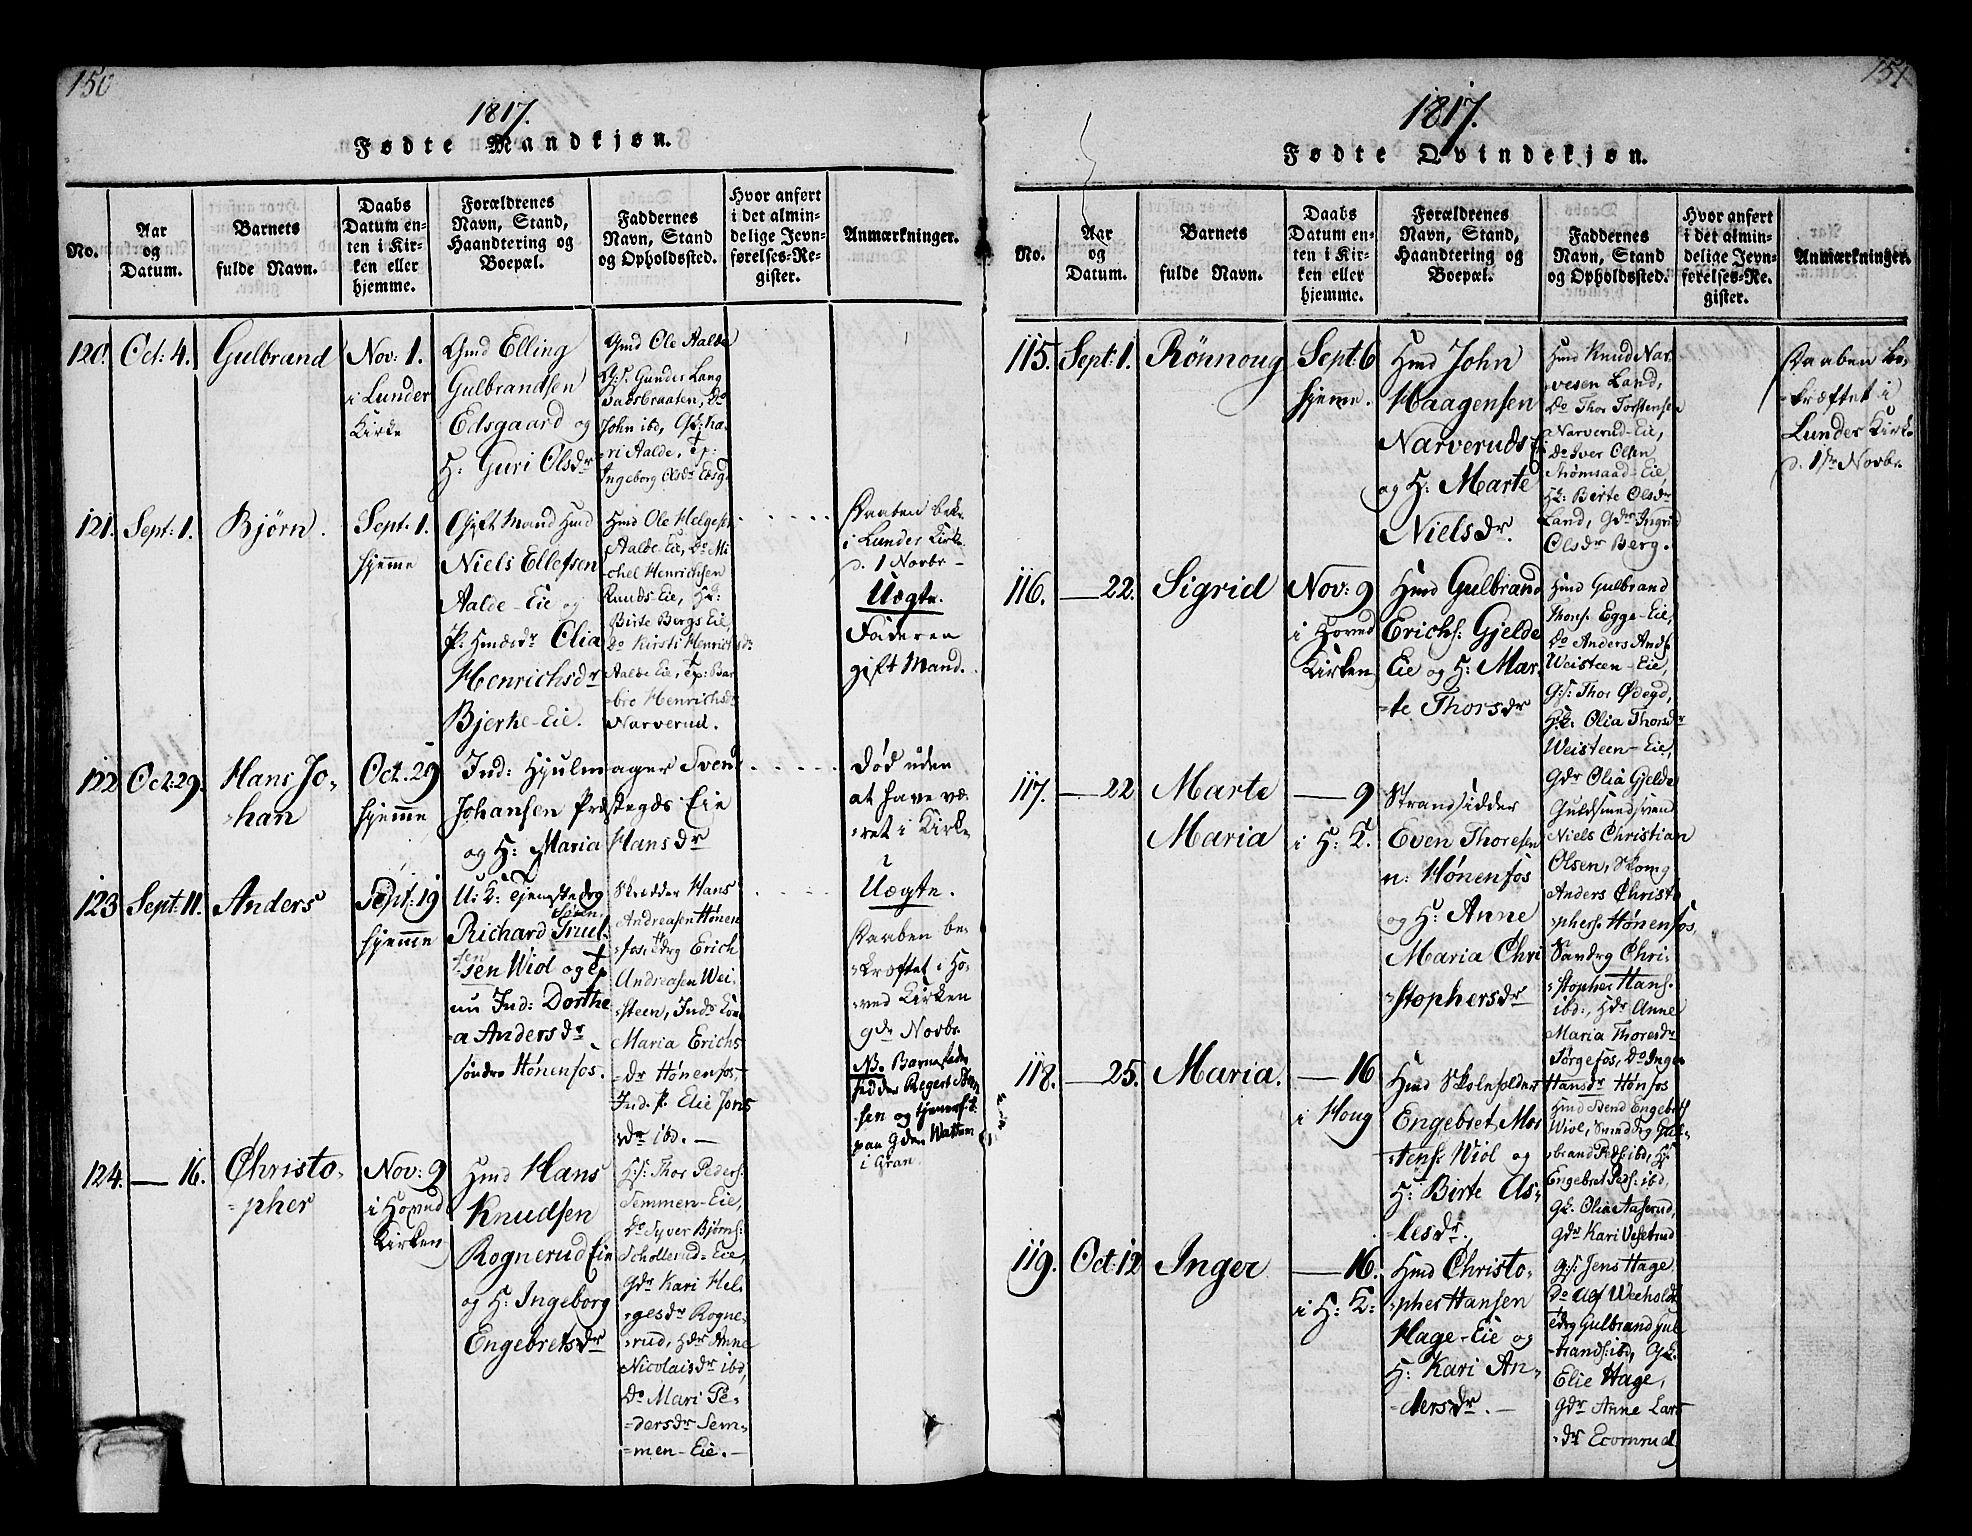 150
1817.
Fødte Mandkjøn.
No.
Aar
og
Datum.
Barnets
fulde Navn.
Daabs
Datum en-
ten i Kir-
ken eller
hjemme.
Forældrenes
Navn, Stand,
Haandtering og
Boepæl.
Faddernes
Navn, Stand
og Opholdssted.
Hvor anført
i det almin-
delige Jevn-
førelses-Re-
gister.
Anmærkninger.
120.
Oct: 4.
Gulbrand
Nov: 1.
i Lunder
Kirke
Gmd Elling
Gulbrandsen
Edsgaard og
H: Guri Olsdr
Gmd Ole Aalde
G:s: Gunder Lang
John ibd, Gk: Ka-
ri Aalde, Tp:
Ingeborg Olsdr Edsg
121.
Sept: 1.
Bjørn.
Sept: 1.
hjemme
Gift Mand Hmd
Niels Ellefsen
Aalde-Eie og
P. Hmdsdr Olia
Henrichsdr
Bjerke-Eie.
Hmd Ole Helgesen
Aalde-Eie, Do Mi-
chel Henrichsen
Rands-Eie, Hk:
Birte Bergs Eie,
Do Kirsti Henrichsdr
Aalde Eie, Tp: Bar-
bro Henrichsdr
Narverud.
Daaben bek.
i Lunder Kirke
d. 1 Novbr -
Uægte.
Faderen
gift Mand.
122
Oct: 29.
Hans Jo-
han
Oct. 29
hjemme
Ind: Hjulmager Svend
Johansen Præstegds Eie
og H: Maria Hansdr
Død uden
at have væ-
ret i Kirke
123
Sept: 11.
Anders
Sept: 19
hjemme
U: K: Tjenstedrg
Søren
Richard Truul-
sen Wiol og Tp
nu Ind: Dorthe
a Andersdr
søndre Hønenfos.
Skrædder Hans
Andreasen Hønen
fos, Tdrg Erich
Andreasen Wei-
steen, Inds Kone
Maria Erichs
dr Hønenfos,
Ind. P. Elie Jons
dr ibd. -
Uægte.
Daaben be-
kræftet i Ho-
ved Kirken
9de Novbr
NB. Barnefader
hedder Regert Søren
sen og tjener f. t.
paa Gden Watten
i Gran.
124.
- 16.
Christo-
pher
Nov: 9
i Hoved
Kirken
Hmd Hans
Knudsen
Rognerud Eie
og H: Ingeborg
Engebretsdr
H:s: Thor Peders:
Semmen-Eie,
Do Syver Bjørns:
Schollerud-Eie,
Gdr Kari Hel-
gesdr Rogne-
rud, Hdr Anne
Nicolaisdr ibd,
Do Mari Pe-
dersdr Sem-
men-Eie. -
151
1817.
Fødte Qvindekjøn.
No.
Aar
og
Datum.
Barnets
fulde Navn.
Daabs
Datum en-
ten i Kir-
ken eller
hjemme.
Forældrenes
Navn, Stand,
Haandtering og
Boepæl.
Faddernes
Navn, Stand
og Opholdssted.
Hvor anført
i det almin-
delige Jevn-
førelses-Re-
gister.
Anmærkninger.
115.
Sept: 1.
Rönnoug
Sept: 6
hjemme.
Hmd John
Haagensen
Narveruds Ei
og H: Marte
Nielsdr.
Hmd Knud Nar-
vesen Land,
Do Thor Torstensen
Narverud-Eie,
Do Iver Olsen
Strømsaad-Eie,
Hk: Birte Olsdr
Land, Gdr Ingrid
Olsdr Berg.
Daaben be-
kræftet i
Lunder Kirke
d. 1ste Novbr.
116.
- 22.
Sigrid
Nov: 9
i Hoved
Kirken
Hmd Gulbrand
Erichs: Gjelde
Eie og H: Mar-
te Thorsdr
Hmd Gulbrand
Thors: Egge-Eie,
Do Anders Ands
Weisteen-Eie,
G:s: Thor Ødegd,
Hk: Olia Thorsdr
Weisteen-Eie,
Gdr Olia Gjelde
117.
- 22
Marte
Maria
- 9
i H: K.
Strandsidder
Even Thoresen
n: Hönenfos
og H: Anne
Maria Chri
stophersdr
Guldsmedsvend
Niels Christian
Olsen, Skomg
Anders Christo
phers: Hönenfos,
Sandrg Chri-
stopher Hans:
ibd:, Hdr Anne
Maria Thoresdr
Sørgefos, Do Inger
Hansdr Hønfos
118.
- 25.
Maria.
- 16
i Houg
Hmd Skoleholder
Engebret Mor
tens: Wiol og
H: Birte As-
lesdr.
Hmd Svend Engebrets
Wiol, Svend Tdrg Gul-
brand Peds: ibd, H:
Engebret Peds: ibd,
Gk. Olia Aaserud,
Gdr Kari Vesetrud
119.
Oct: 12
Inger
- 16.
i H: K:
Hmd Christo-
pher Hansen
Hage-Eie og
H: Kari An-
dersdr. -
G:s: Jens Hage
Do Alf Weeholdt
Tdrg Gulbrand Gul
brands: ibd, Gk.
Elie Hage,
Gdr Anne Lars
dr Ecornrud